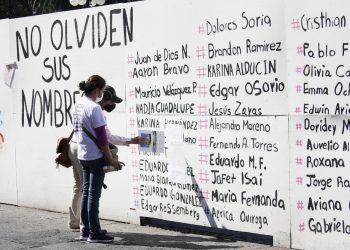 NO OLVIDEN
SUS
NOMBRES
#Juan de Dios N.
#Aaron Bravo
#Mauricio Velázquez P.
#NADIA GUADALUPE
#KARINA HERNÁNDEZ
#EDUARDO
#María
#EDUARDO
#EDUARDO GONZÁLEZ
#Edgar Rossemberg
#Dolores Soria
#Brandon Ramírez
#KARINA ALDUCIN
#Edgar Osorio
#Jesús Zaras
#Alejandro Moreno
#Fernando A. Torres
#Eduardo M.F.
#Jafet Isai
#María Fernanda
#África Quiroga
#Cristhian
#Pablo F
#Olivia Ca
#Emma Och
#Edwin Ari
#Doridey M
#Aurelio A
#Roxana
#Jorge Ra
#Ariana
#Gabriela